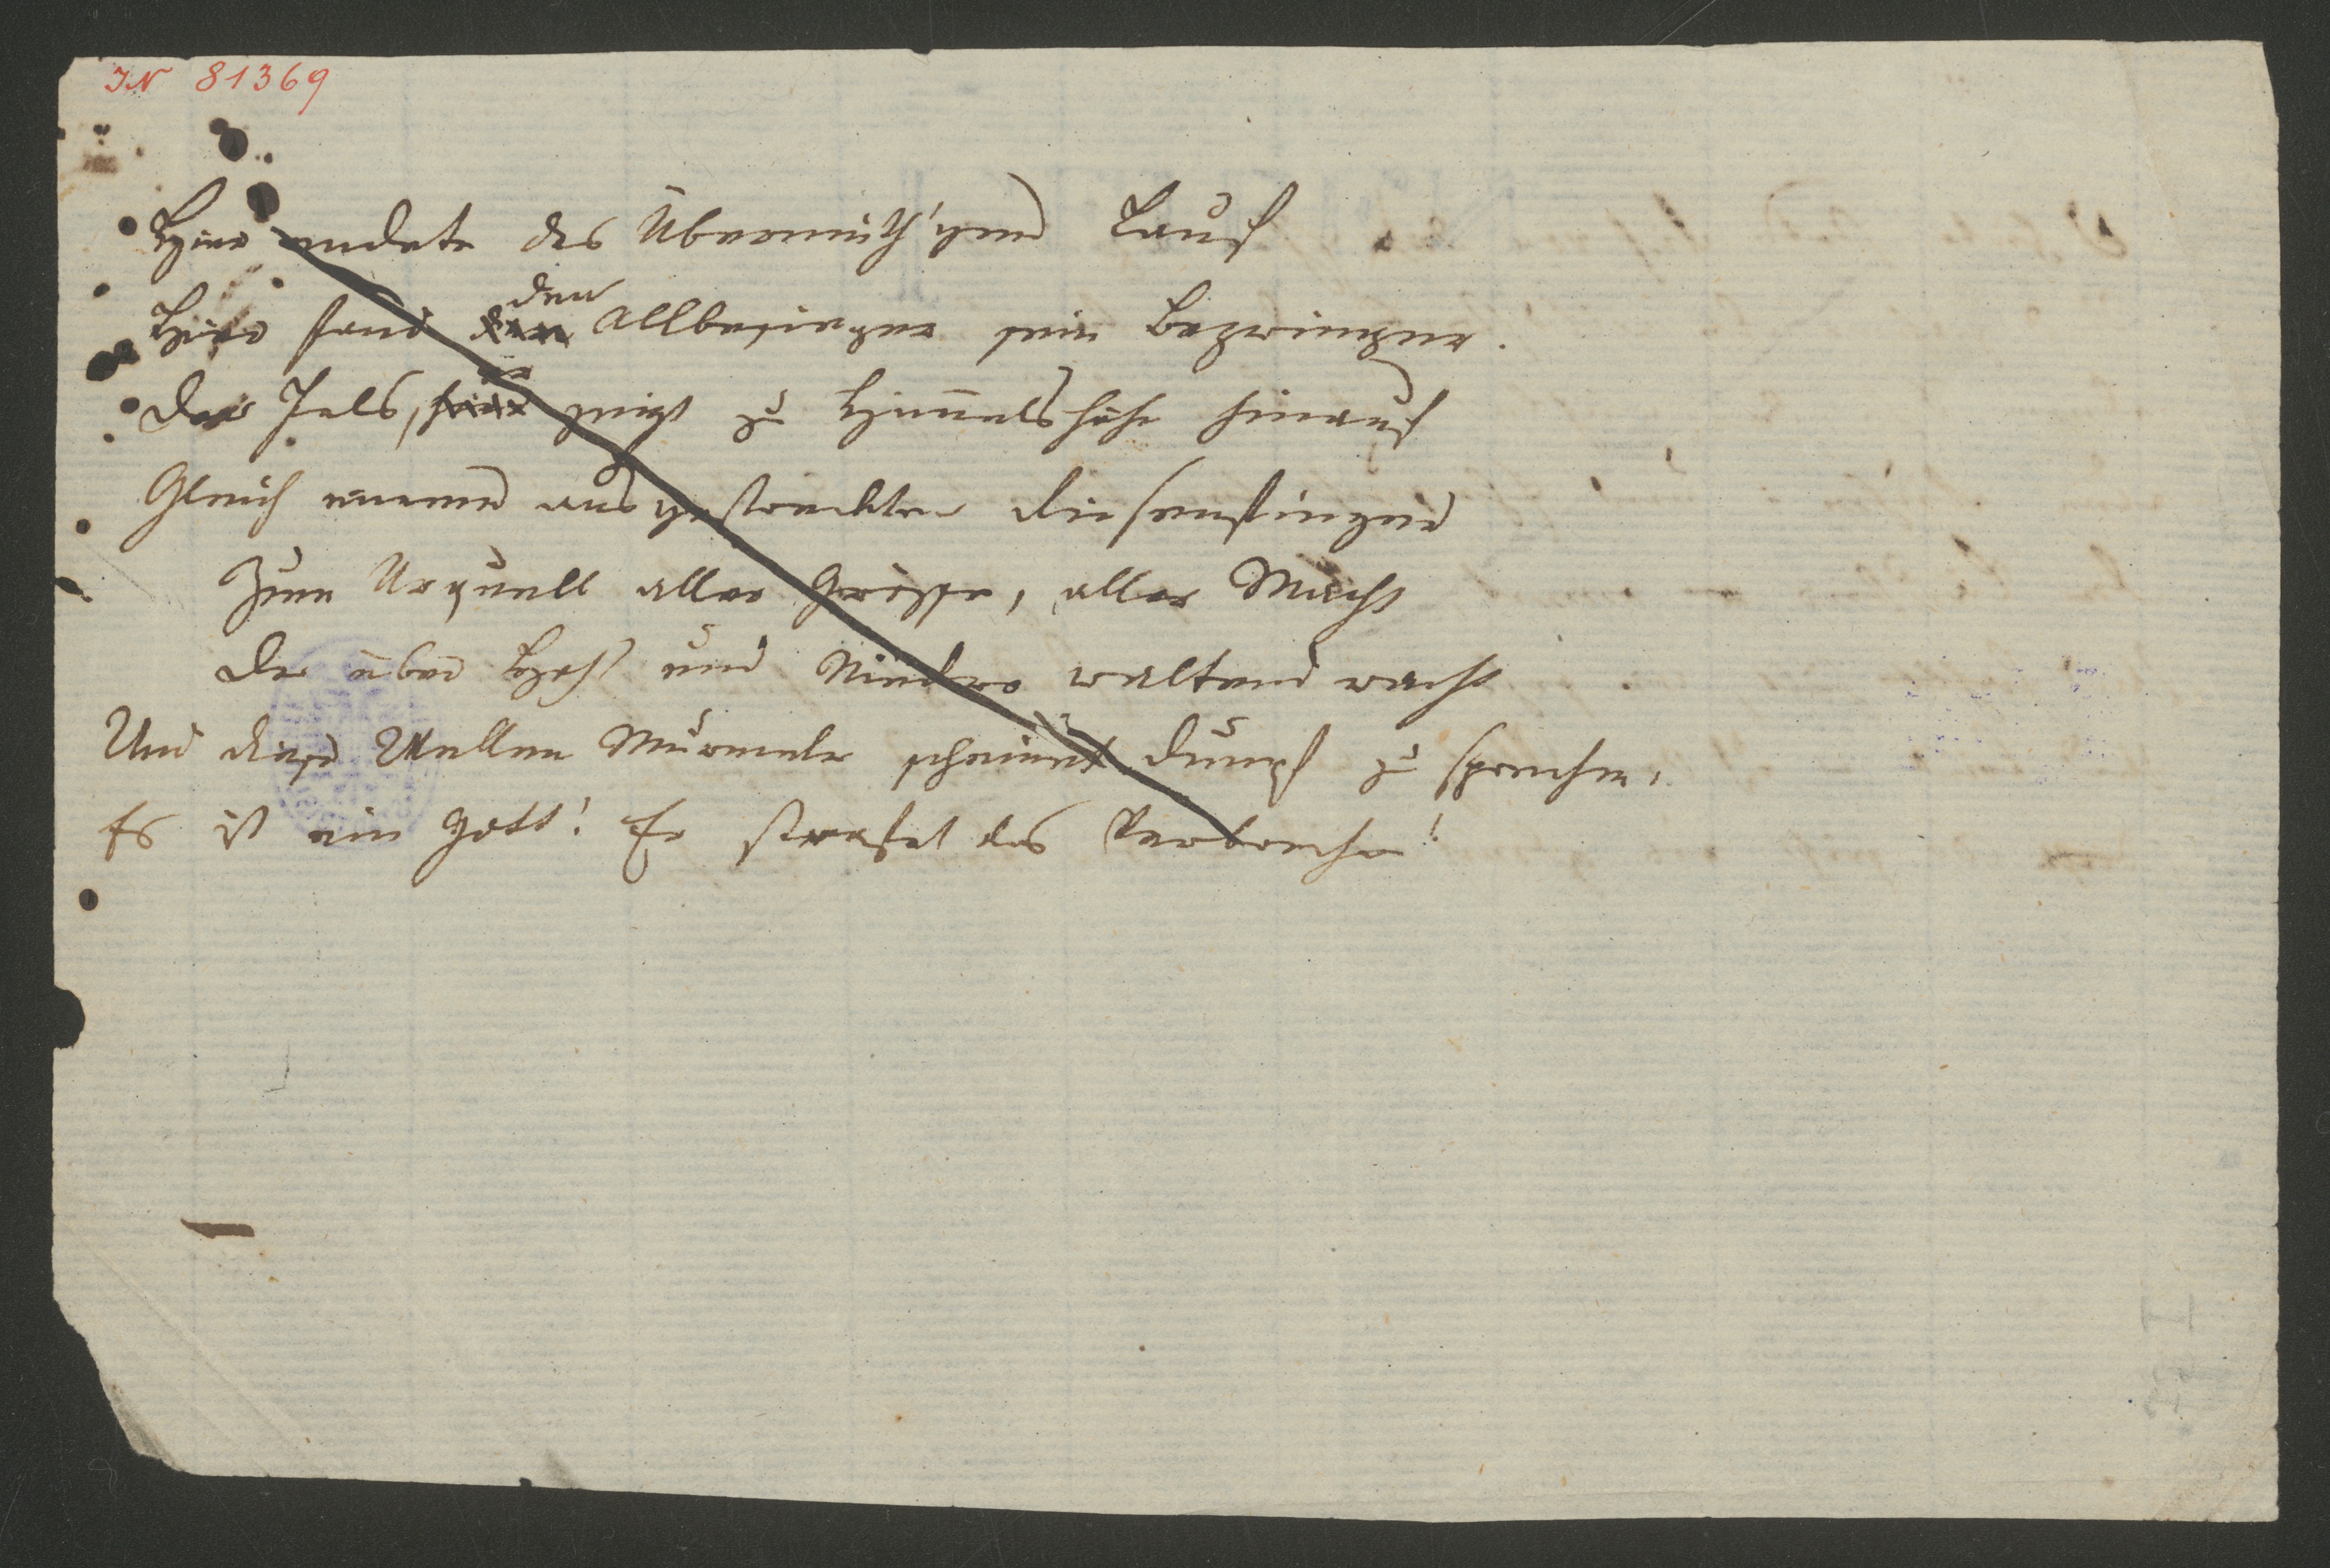 IN 81369
Hier endete des Übermüth'gen Lauf
Hier fand den Allbesieger sein Bezwinger.
Der Fels, er zeigt zu Himmelshöhe hinauf
Gleich einem ausgestreckten Riesenfinger
Zum Urquell aller Grösse, aller Macht
Der über Hoh und Niedre waltend wacht
Und dieser Wellen Murmeln scheint dumpf zu sprechen,
Es ist ein Gott! Er strafet das Verbrechen!